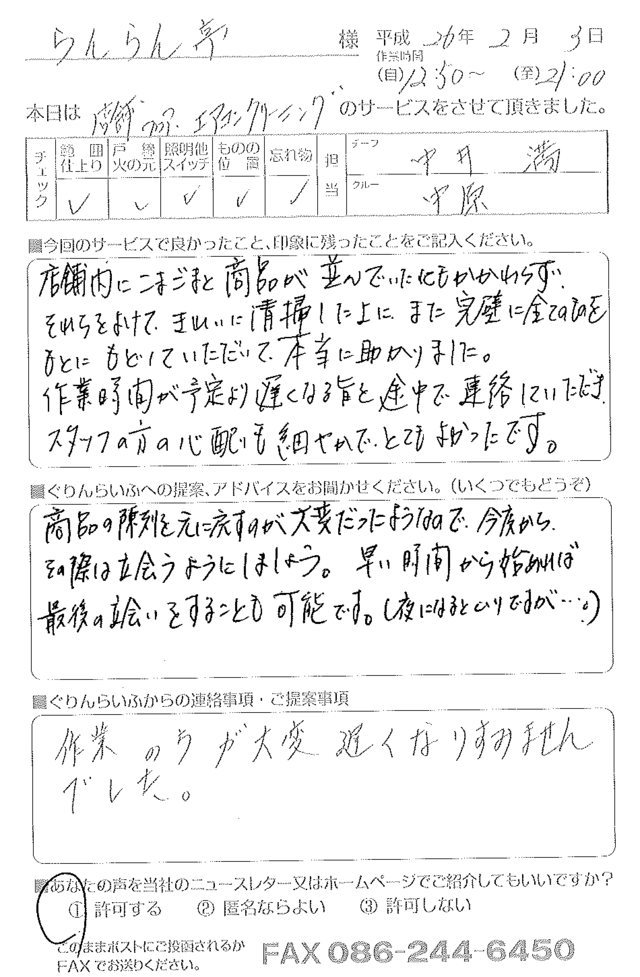 らんらん亭 様 平成26年2月3日
作業時間
(自)12:30～ (至)21:00
本日は 店舗 エアコンクリーニング のサービスをさせて頂きました。
チェック 範囲 仕上り 戸締 火の元 照明他 スイッチ ものの 位置 忘れ物 担当 チーフ 中井 満
✓ ✓ ✓ ✓ ✓ クルー 中原
■今回のサービスで良かったこと、印象に残ったことをご記入ください。
店舗内にこまごまと商品が並んでいたにもかかわらず、
それらをよけて、きれいに清掃した上に、また完璧に全てのものを
もとにもどしていただいて、本当に助かりました。
作業時間が予定より遅くなる旨を途中で連絡していただき、
スタッフの方の心配りも細やかで、とてもよかったです。
■ぐりんらいふへの提案、アドバイスをお聞かせください。（いくつでもどうぞ）
商品の陳列を元に戻すのが大変だったようなので、今度から、
その際は立会うようにしましょう。早い時間から始めれば
最後の立会いをすることも可能です。(夜になるとムリですが…。)
■ぐりんらいふからの連絡事項・ご提案事項
作業のうが大変遅くなりすみません
でした。
■あなたの声を当社のニュースレター又はホームページでご紹介してもいいですか？
① 許可する ② 匿名ならよい ③ 許可しない
このままポストにご投函されるか
FAXでお送りください。 FAX 086-244-6450